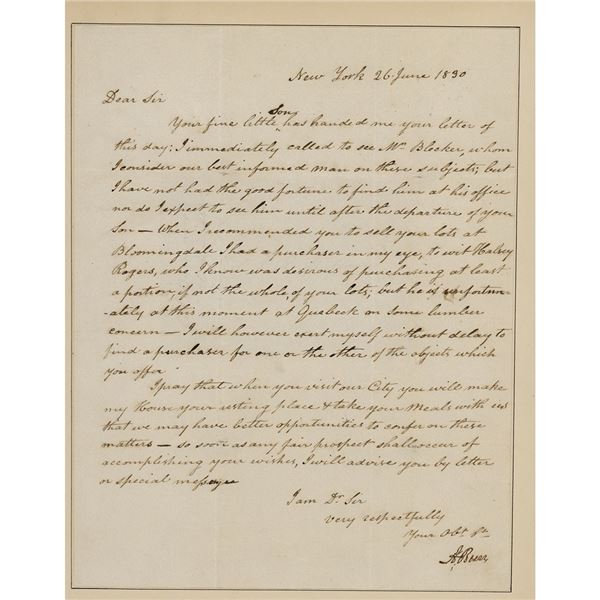 New York 26 June 1830
Dear Sir
Your fine little Son has handed me your letter of
this day; I immediately called to see Mr. Blecker, whom
I consider our best informed man on these subjects, but
I have not had the good fortune to find him at his office
nor do I expect to see him until after the departure of your
Son — When I recommended you to sell your lots at
Bloomingdale I had a purchaser in my eye, to wit Halsey
Rogers, who I know was desirous of purchasing at least
a portion, if not the whole of your lots; but he is unfortun-
-ately at this moment at Quebeck on some lumber
concern — I will however exert myself without delay to
find a purchaser for one or the other of the objects which
you offer
I pray that when you visit our City you will make
my House your resting place & take your Meals with us
that we may have better opportunities to confer on these
matters — so soon as any fair prospect shall occur of
accomplishing your wishes, I will advise you by letter
or special message
I am Dr. Sir
very respectfully
Your Obt. St.
A. Burr